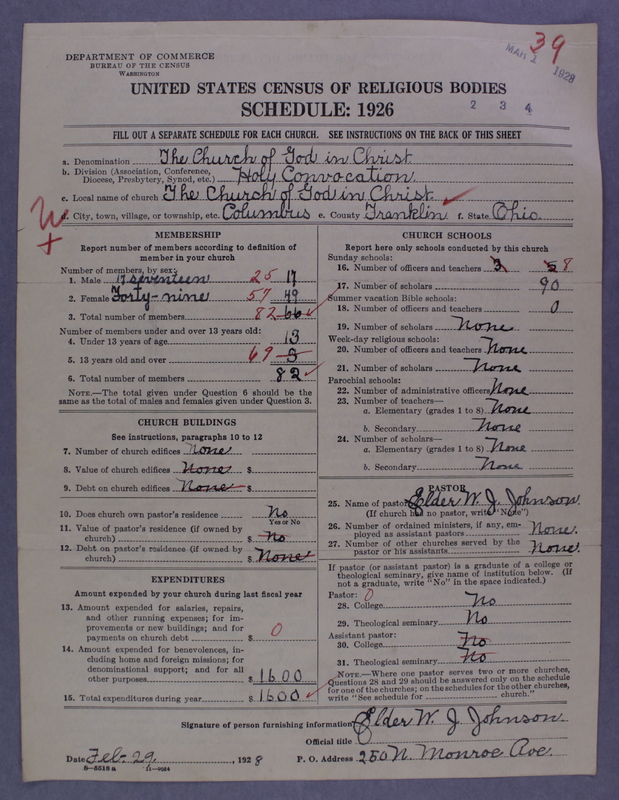 39
MAR 1 1928
DEPARTMENT OF COMMERCE
BUREAU OF THE CENSUS
WASHINGTON
UNITED STATES CENSUS OF RELIGIOUS BODIES
SCHEDULE: 1926
2 3 4
FILL OUT A SEPARATE SCHEDULE FOR EACH CHURCH. SEE INSTRUCTIONS ON THE BACK OF THIS SHEET
a. Denomination The Church of God in Christ
b. Division (Association, Conference, Diocese, Presbytery, Synod, etc.) Holy Convocation
c. Local name of church The Church of God in Christ
d. City, town, village, or township, etc. Columbus e. County Franklin f. State Ohio
MEMBERSHIP
Report number of members according to definition of
member in your church
Number of members, by sex:
1. Male 17 seventeen 25 17
2. Female Forty-nine 57 49
3. Total number of members 82 66
Number of members under and over 13 years old:
4. Under 13 years of age 13
5. 13 years old and over 69 5
6. Total number of members 82
NOTE.—The total given under Question 6 should be
same as the total of males and females given under Question 3.
CHURCH BUILDINGS
See instructions, paragraphs 10 to 12
7. Number of church edifices None
8. Value of church edifices None $
9. Debt on church edifices None $
10. Does church own pastor's residence No
Yes or No
11. Value of pastor's residence (if owned by
church) $ No
12. Debt on pastor's residence (if owned by
church) $ None
EXPENDITURES
Amount expended by your church during last fiscal year
13. Amount expended for salaries, repairs,
and other running expenses; for im-
provements or new buildings; and for
payments on church debt $ 0
14. Amount expended for benevolences, in-
cluding home and foreign missions; for
denominational support; and for all
other purposes $ 1600
15. Total expenditures during year $ 1600
CHURCH SCHOOLS
Report here only schools conducted by this church
Sunday schools:
16. Number of officers and teachers 3 8
17. Number of scholars 90
Summer vacation Bible schools:
18. Number of officers and teachers 0
19. Number of scholars None
Week-day religious schools:
20. Number of officers and teachers None
21. Number of scholars None
Parochial schools:
22. Number of administrative officers None
23. Number of teachers—
a. Elementary (grades 1 to 8) None
b. Secondary None
24. Number of scholars—
a. Elementary (grades 1 to 8) None
b. Secondary None
PASTOR
25. Name of pastor Elder W. J. Johnson
(If church has no pastor, write "None")
26. Number of ordained ministers, if any, em-
ployed as assistant pastors None.
27. Number of other churches served by the
pastor or his assistants None
If pastor (or assistant pastor) is a graduate of a college or
theological seminary, give name of institution below. (If
not a graduate, write "No" in the space indicated.)
Pastor: 0
28. College No
29. Theological seminary No
Assistant pastor:
30. College No
31. Theological seminary No
NOTE.—Where one pastor serves two or more churches,
Questions 28 and 29 should be answered only on the schedule
for one of the churches; on the schedules for the other churches,
write "See schedule for church."
Signature of person furnishing information Elder W. J. Johnson.
Official title
Date Feb. 29, 1928 P. O. Address 250 N. Monroe Ave.
8—5518 a 11—9064